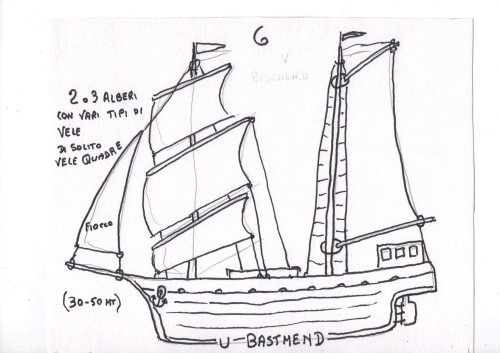 6
U
BASTMEND
2 o 3 ALBERI
CON VARI TIPI DI
VELE
DI SOLITO
VELE QUADRE
FIOCCO
(30-50 MT)
U BASTMEND